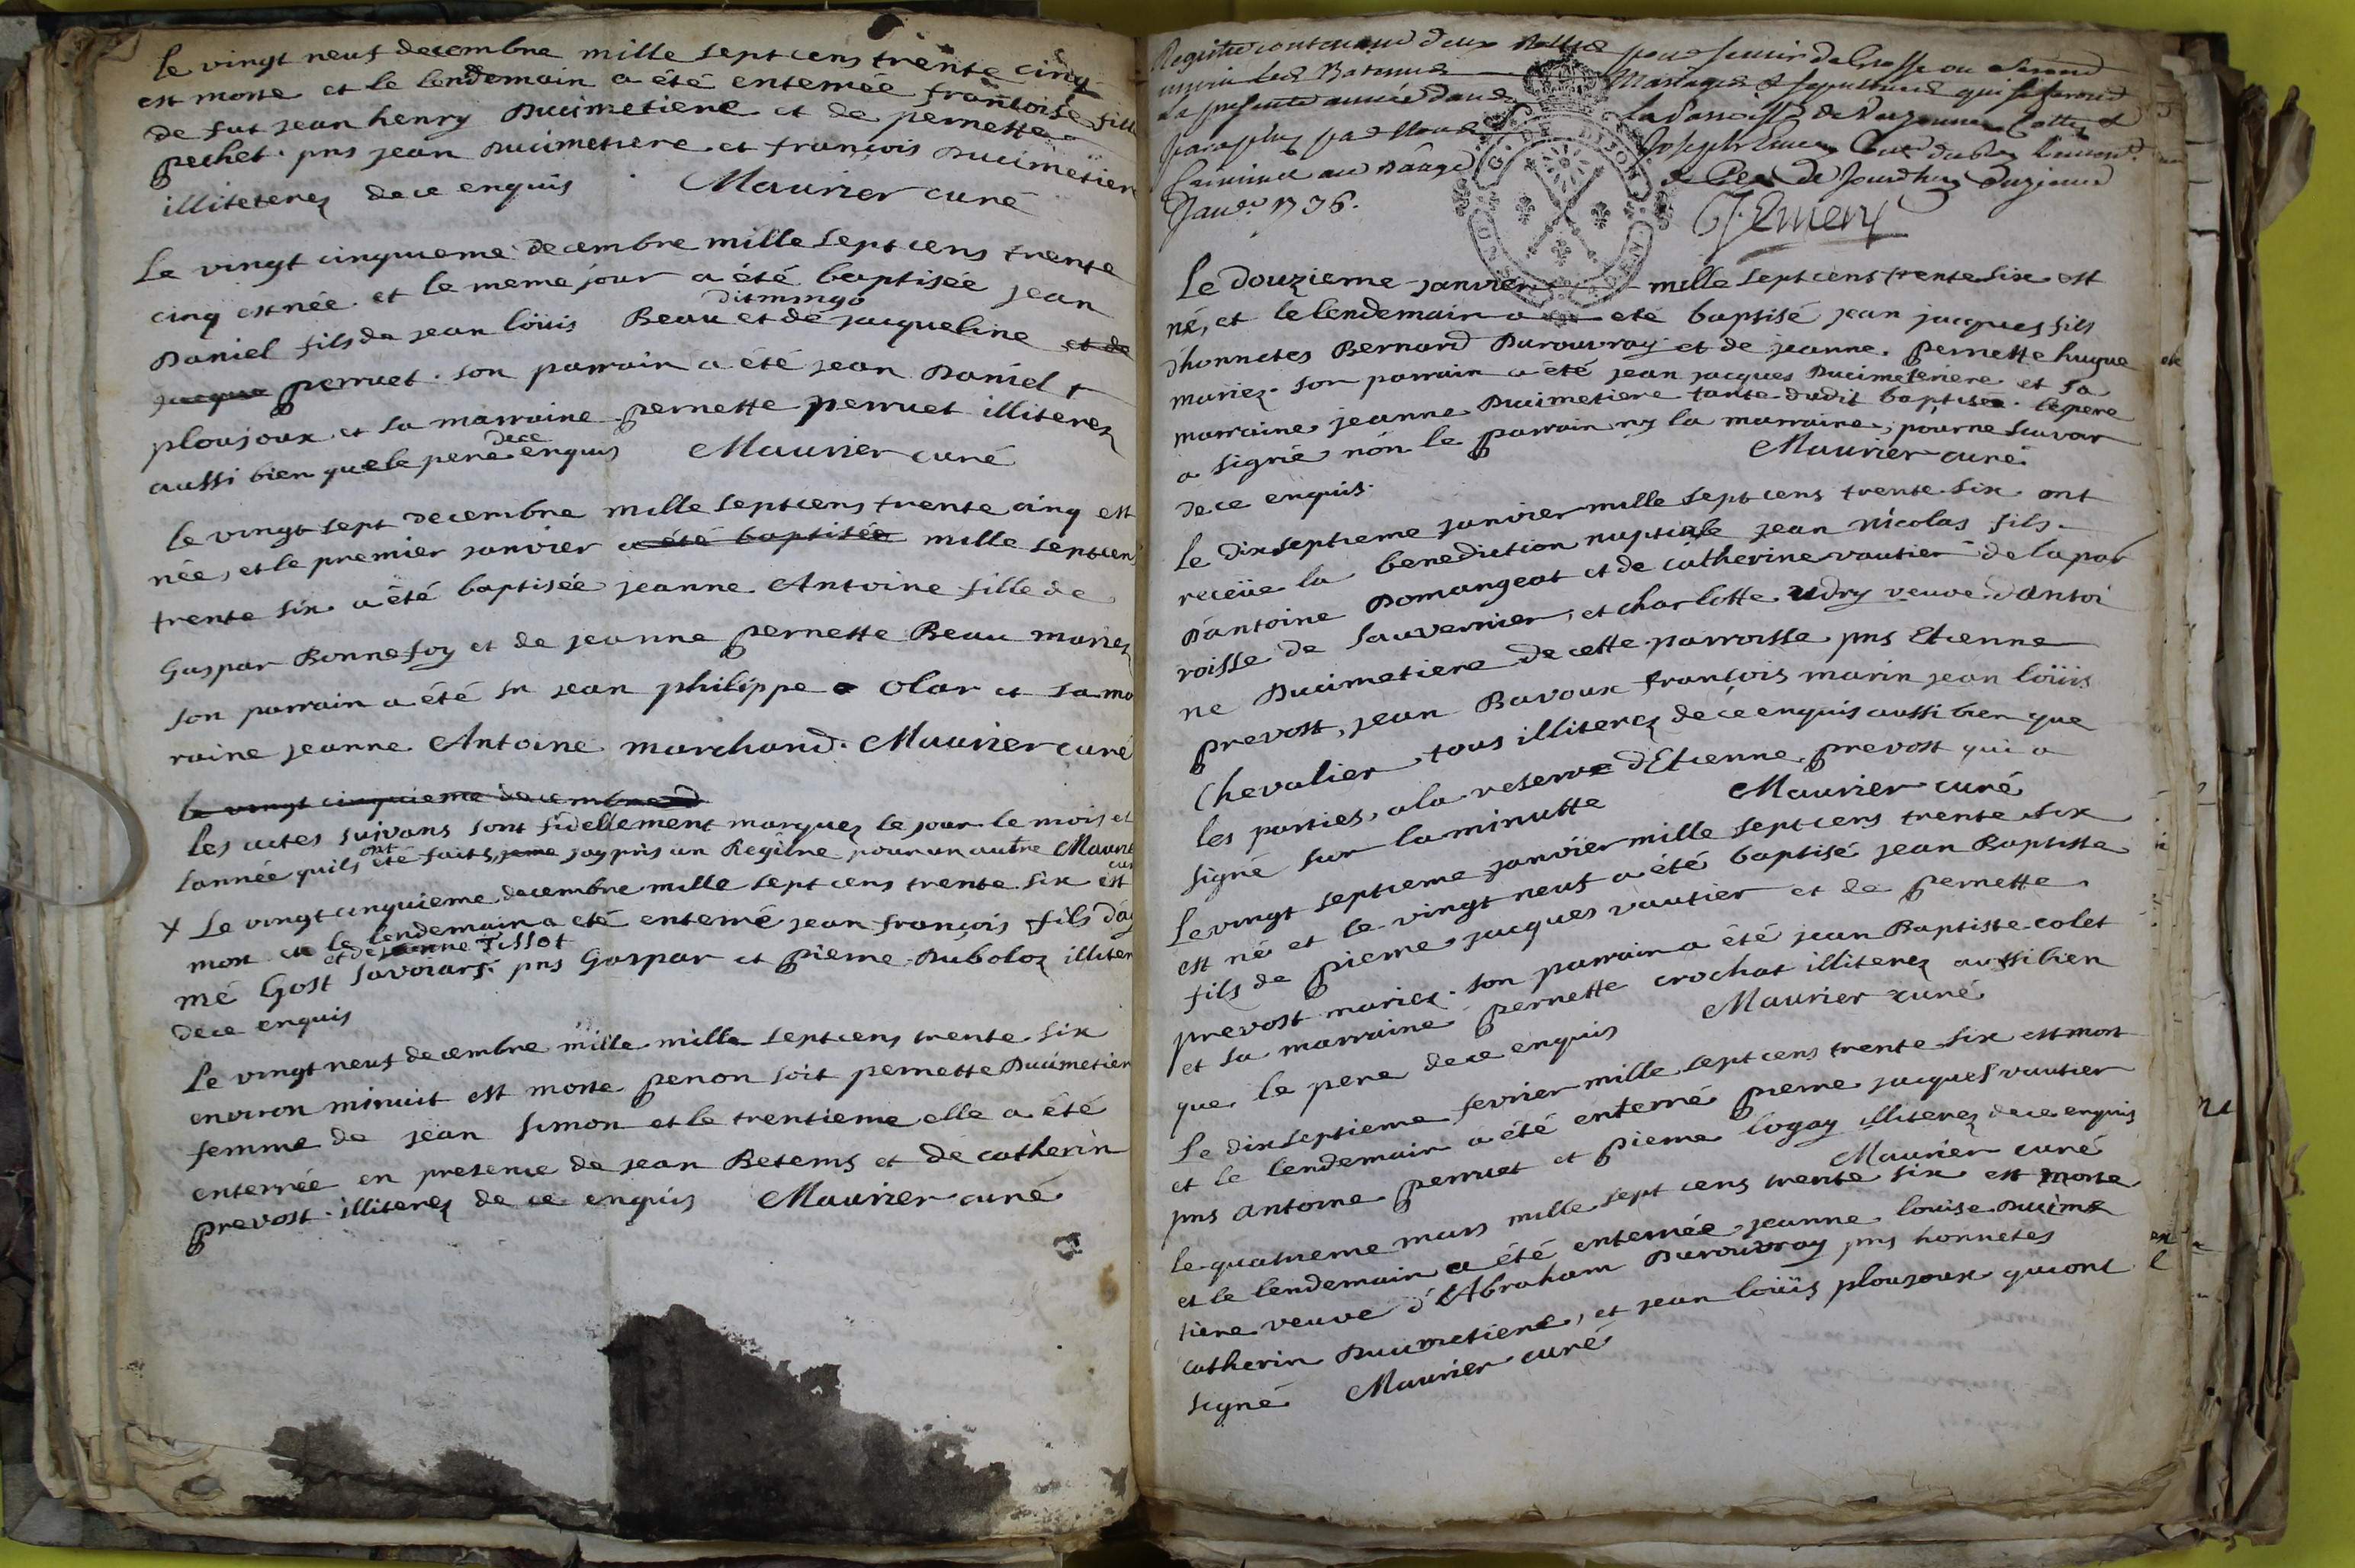 le vingt neuf decembre mille sept cens trente cinq
est morte et le lendemain a été enterrée françoise fille
de fut jean henry Ducimetiere et de pernette
pechet. pns jean ducimetiere et françois ducimetiere
illiterez de ce enquis Maurier curé
Le vingt cinquieme decembre mille sept cens trente
cinq est née et le meme jour a été baptisée jean
Daniel fils de jean loüis Beau et de jacqueline et de
jacque perruet. son parrain a été jean Daniel +
ploujoux et sa marraine pernette perruet illiterez
aussi bien que le pere de ce enquis Maurier curé
le vingt sept decembre mille sept cens trente cinq est
née, et le premier janvier a été baptisée mille sept cens
trente six a été baptisée jeanne Antoine fille de
Gaspar Bonnefoy et de jeanne pernette Beau mariez
son parrain a été sr jean philippe olar et sa ma
raine jeanne Antoine marchand. Maurier curé
le vingt cinquieme decembre
les actes suivans sont fidellement marquez le jour le mois et
l'année quils ont été faits, jay pris un Regitre pour un autre Maurier
curé
+ Le vingt cinquieme decembre mille sept cens trente six est
mort et le lendemain a eté enterré jean françois fils d'ay
et de jeanne Tissot
mé Gost savoiart. pns Gaspar et pierre Duboloz illiterez
de ce enquis
Le vingt neuf decembre mille mille sept cens trente six
environ minuit est morte penon soit pernette Ducimetiere
femme de jean simon et le trentieme elle a été
enterrée en presence de jean Betems et de catherin
prevost. illiterez de ce enquis Maurier curé
Regitre contenant deux pour servir de grosse ou
les Batemes Mariages & sepultures qui se feront
La presente année dans la Paroisse de
par Joseph Emery
Janvr 1736.
J. Emery
Le douzieme janvier mille sept cens trente six est
né, et le lendemain a eté baptisé jean jacques fils
d'honnetes Bernard Durouvray et de jeanne pernette hugue
mariez. son parrain a été jean jacques Ducimeteriere et sa
marraine jeanne Ducimetiere tante dudit baptisé. le pere
a signé nón le parrain ny la marraine, pour ne scavoir
de ce enquis. Maurier curé
Le dixseptieme janvier mille sept cens trente six ont
receüe la benediction nuptiale jean nicolas fils
d'antoine Domangeat et de catherine vautier de la par
roisse de sauvernier, et charlotte udry veuve d'antoi
ne Ducimetiere de cette parroisse pns Etienne
prevost, jean Bavoux françois marin jean loüis
Chevalier tous illiterez de ce enquis aussi bien que
les parties, a la reserve d'Etienne prevost qui a
signé sur la minutte Maurier curé
Le vingt septieme janvier mille sept cens trente six
est né et le vingt neuf a été baptisé jean Baptiste
fils de pierre jacques vautier et de pernette
prevost mariez. son parrain a été jean Baptiste colet
et sa marraine pernette crochat illiterez aussi bien
que le pere de ce enquis Maurier curé
Le dixseptieme fevrier mille sept cens trente six est mort
et le lendemain a été enterré pierre jacques vautier
pns antoine perruet et pierre logay illiterez de ce enquis
Maurier curé
le quatrieme mars mille sept cens trente six est morte
et le lendemain a été enterrée jeanne louise Ducime
tiere veuve d'Abraham Durouvray pns honnetes
catherin Ducimetiere, et jean loüis ploujoux qui ont
signé Maurier curé